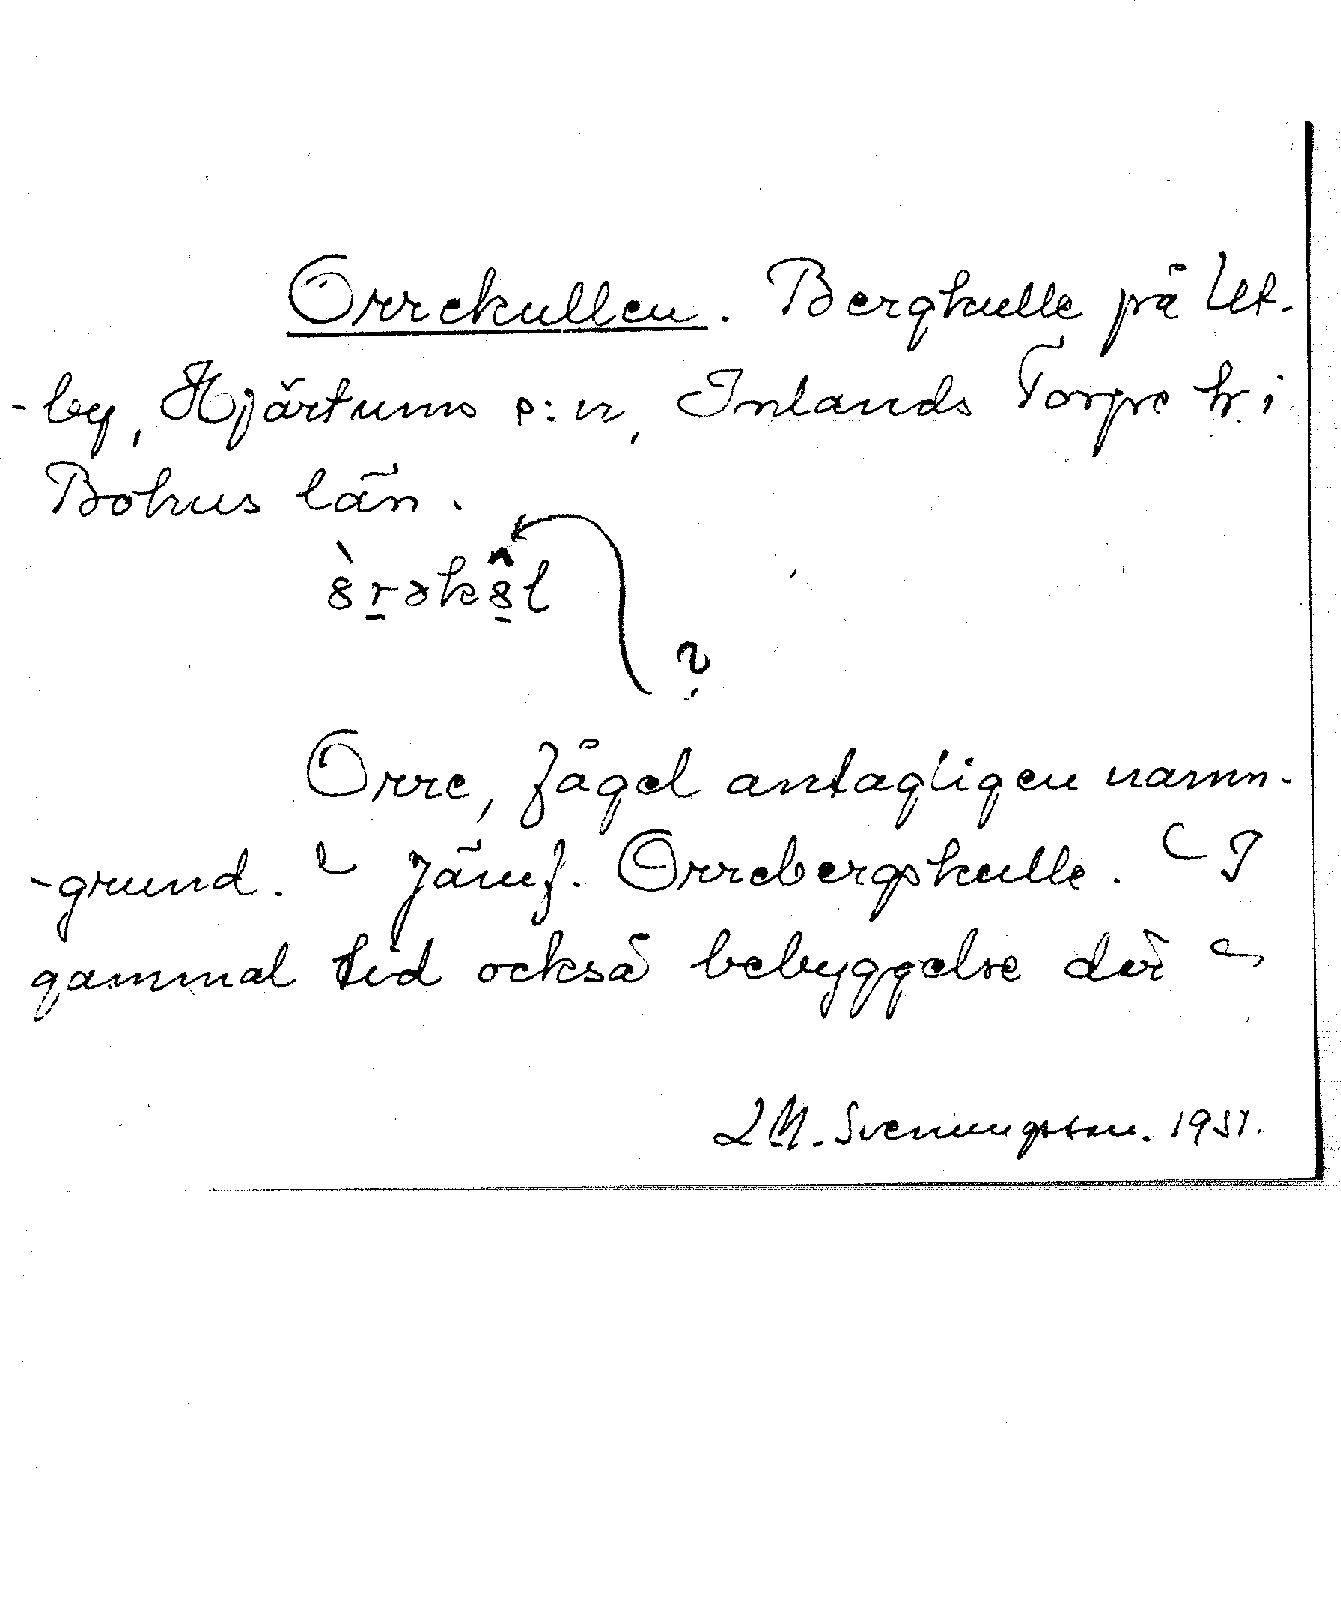 Orrekullen. Bergkulle på Ut-
-by, Hjärtums s:n, Inlands Torpe hr. i
Bohus län.
?
Orre, fågel antagligen namn-
-grund. Jämf. Orrebergskulle. I
gammal tid också bebyggelse där
L M. Svenungsson. 1931.